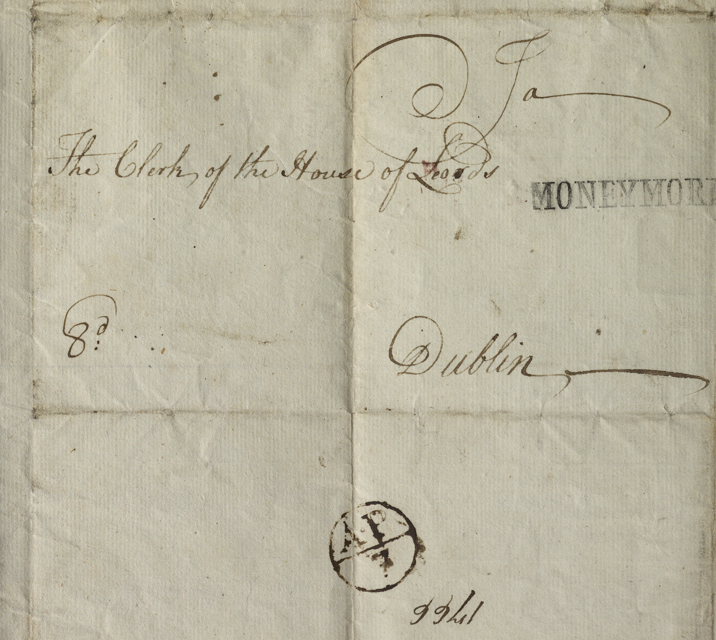 To
The Clerk of the House of Lords
MONEYMORE
8d
Dublin
AP
7
1766